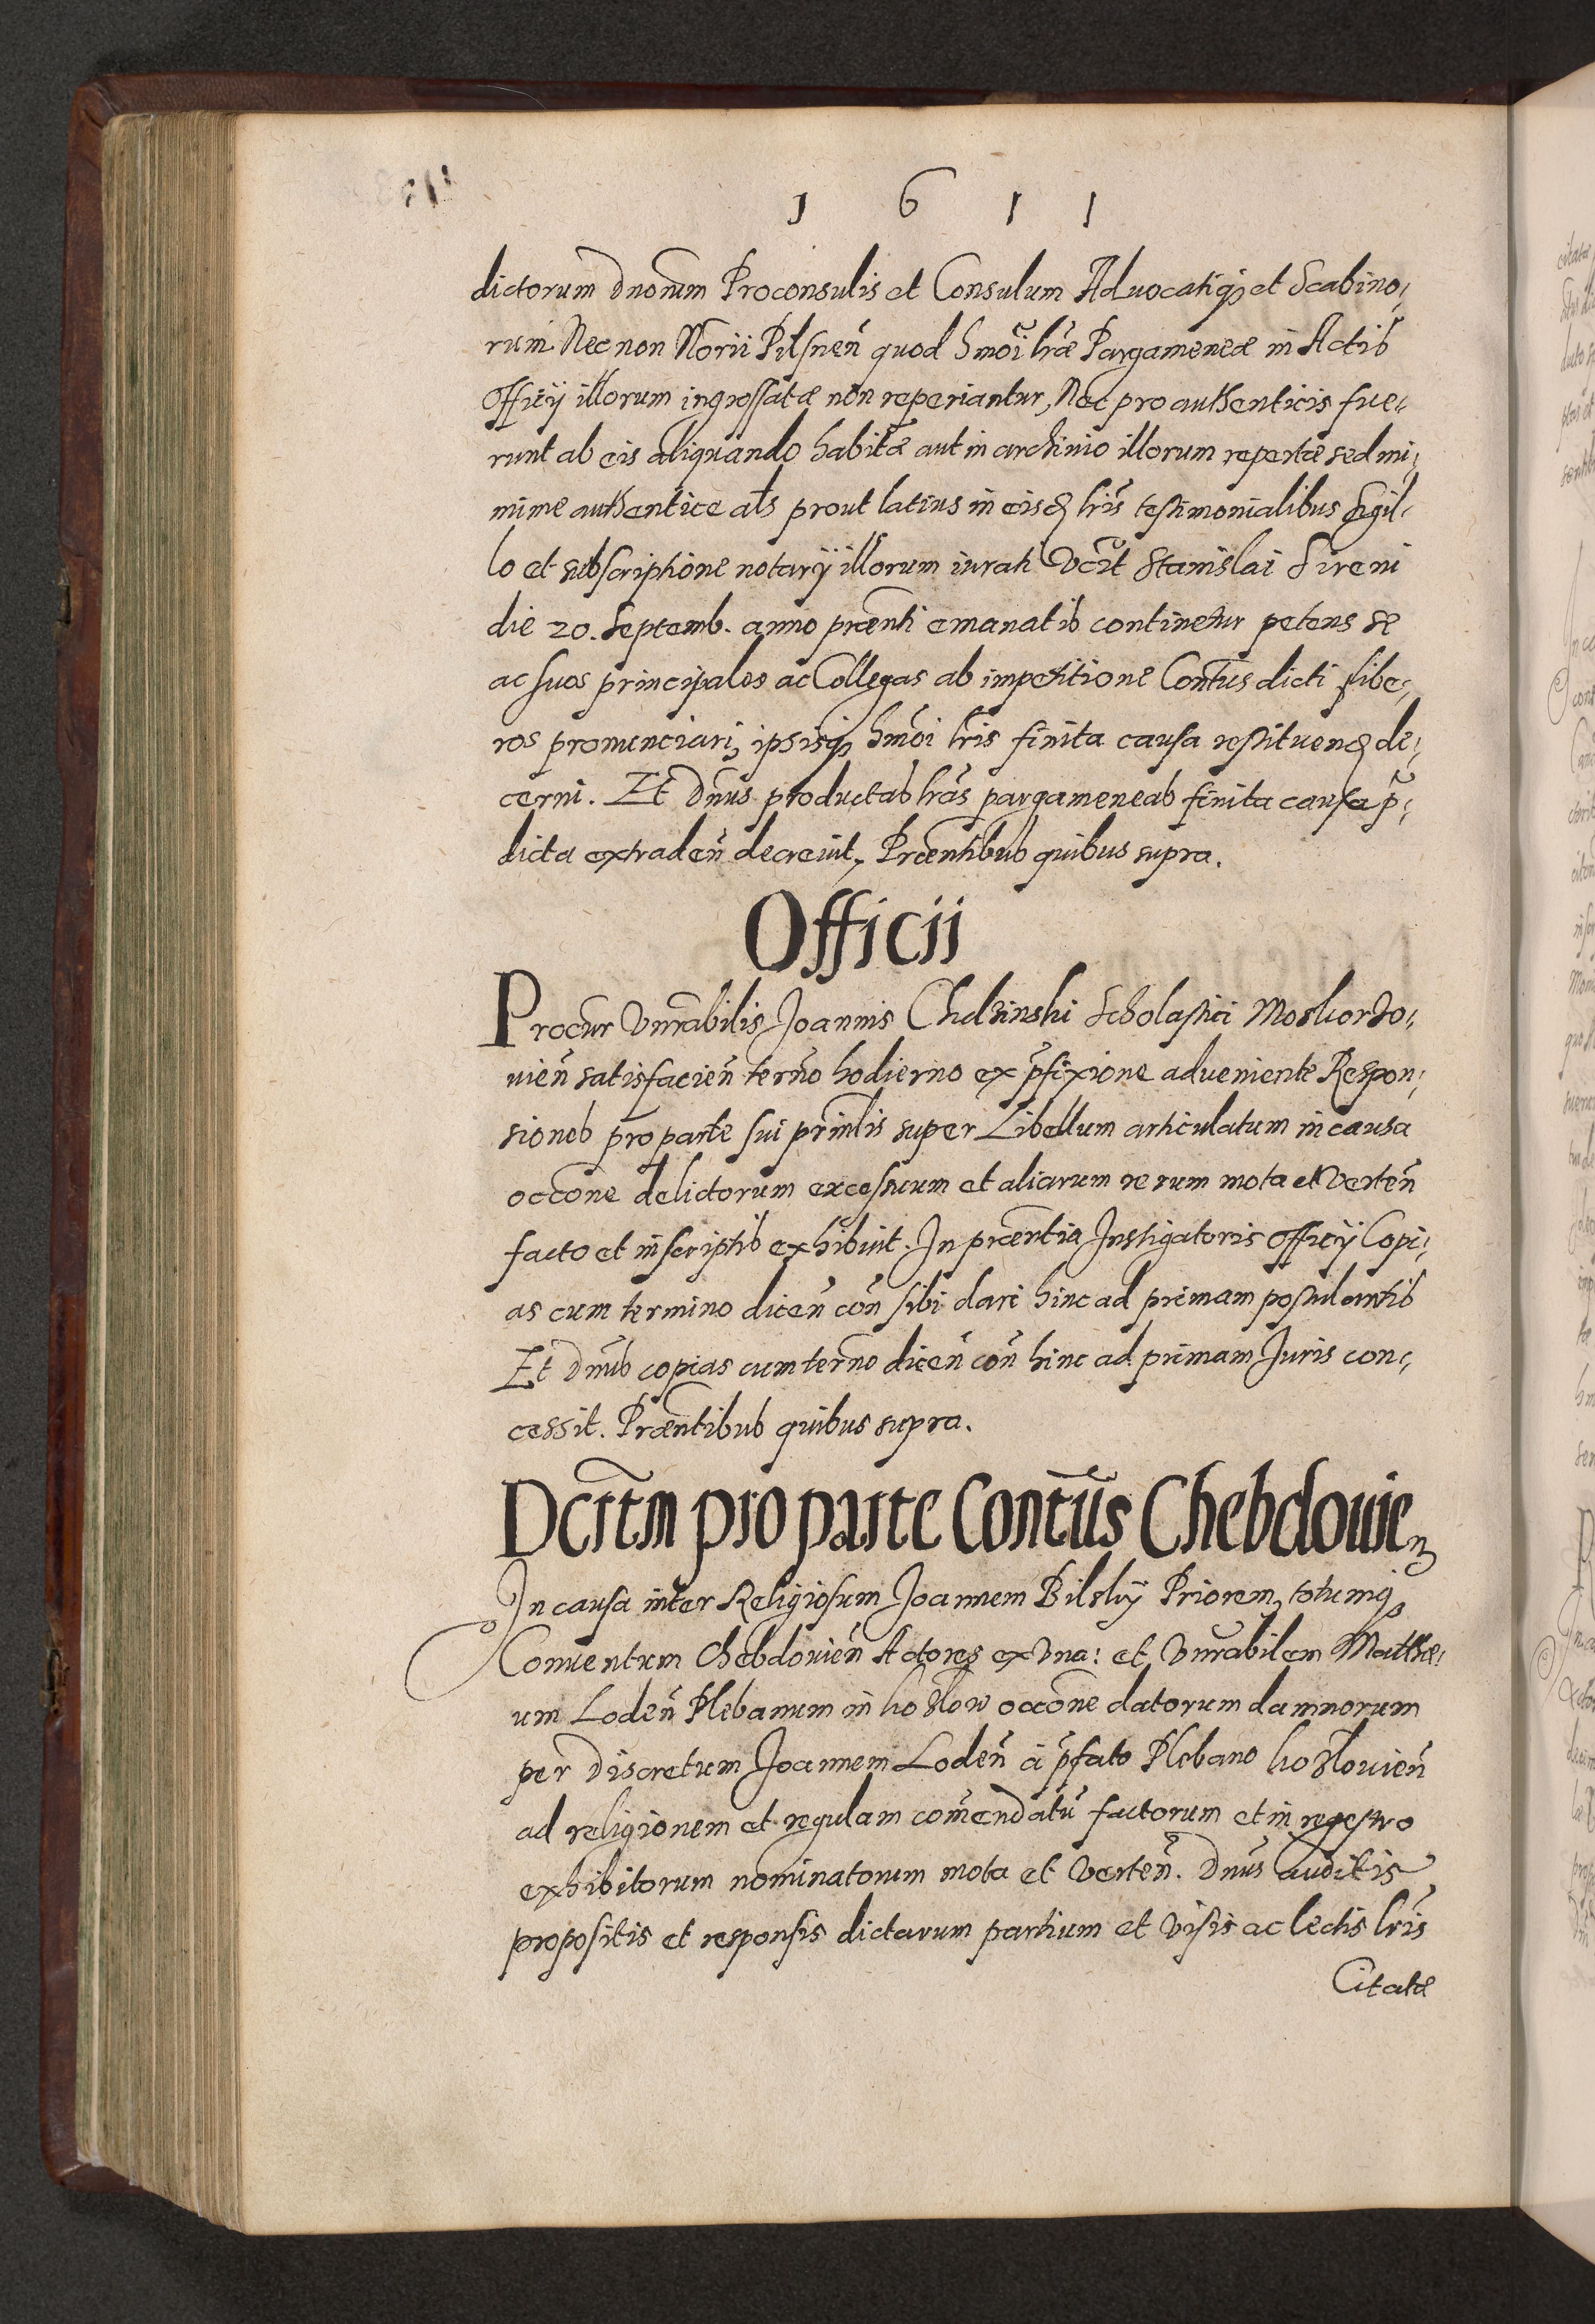 1 6 1 1
dictorum Dnorum Proconsulis et Consulum Advocatiq3 et Scabino¸
rum Nec non Norii Pilsnen̄ quod hmōi lr̄æ Pargameneæ in Actib
Officÿ illorum ingrossatæ non reperiantur, Nec pro authenticis fue¸
runt ab eis aliquando habitæ aut in archivio illorum repertæ sed mi¸
nime authentice als prout latius in eisd lr̄is testimonialibus Sigil¸
lo et subscriptione notarÿ illorum iurati Stanislai Sireni
die 20. Septemb. anno præn̄ti emanatib continetur petens se
ac suos principales ac Collegas ab impetitione Contūs dicti libe¸
ros pronunciari, ipsisq3 hmōi lr̄is finita causa restituend de¸
cerni. Et Dn̄us productas lr̄as pargameneas finita causa p̄¸
dicta extraden̄ decrevit, Præn̄tibus quibus supra.
Officii
Procur̄ Vnr̄abilis Joannis Chelsinski Scholastici Moskorzo¸
vien̄ satisfacien̄ terno hodierno ex p̄fixione adveniente Respon¸
siones pro parte sui prin̄lis super Libellum articulatum in causa
occōne delictorum excessuum et aliarum rerum mota et Verten̄
facto et in scriptis exhibuit. In præn̄tia Instigatoris Officÿ Copi¸
as cum termino dicen̄ con̄ sibi dari hinc ad primam postulantis
Et Dn̄us copias cum terno dicen̄ con̄ hinc ad primam Juris con¸
cessit. Præn̄tibus quibus supra.
Dcrtm pro parte Contūs Chebdovien
In causa inter Religiosum Joannem Bilskÿ Priorem, totumq3
Conventum Chebdovien̄ Actores ex Vna: et Vnr̄abilem Matthæ¸
um Loden̄ Plebanum in Koslow occōne datorum damnorum
per Discretum Joannem Loden̄ à p̄fato Plebano Koslovien̄
ad religionem et regulam com̄endatū factorum et in regestro
exhibitorum nominatorum mota et Verten̄. Dn̄us auditis
propositis et responsis dictarum partium et Visis ac lectis lr̄is
Citatæ